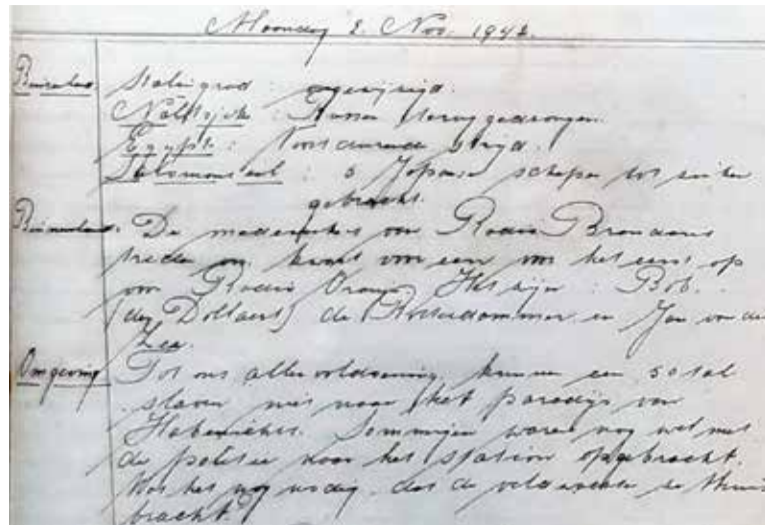 Maandag 2. Nov. 1942.
Buitenland Stalingrad : ongewijzigd.
Naltsjik : Russen teruggedrongen.
Egypte : Voortdurende strijd.
Salomonseil : 5 Japanse schepen tot zinken
gebracht.
Binnenland. De medewerkers van Radio Brandaris
treden om kwart voor een voor het eerst op
voor Radio Oranje. Het zijn : Bob.
(den Dollaert) de Rotterdammer en Jan van de
Zee.
Omgeving Tot ons aller voldoening een 50 tal
slaven naar het paradijs van
Sommigen waren nog wel met
de politie naar het station opgebracht.
Was het nog nodig, dat de veldwachter ze thuis
bracht?